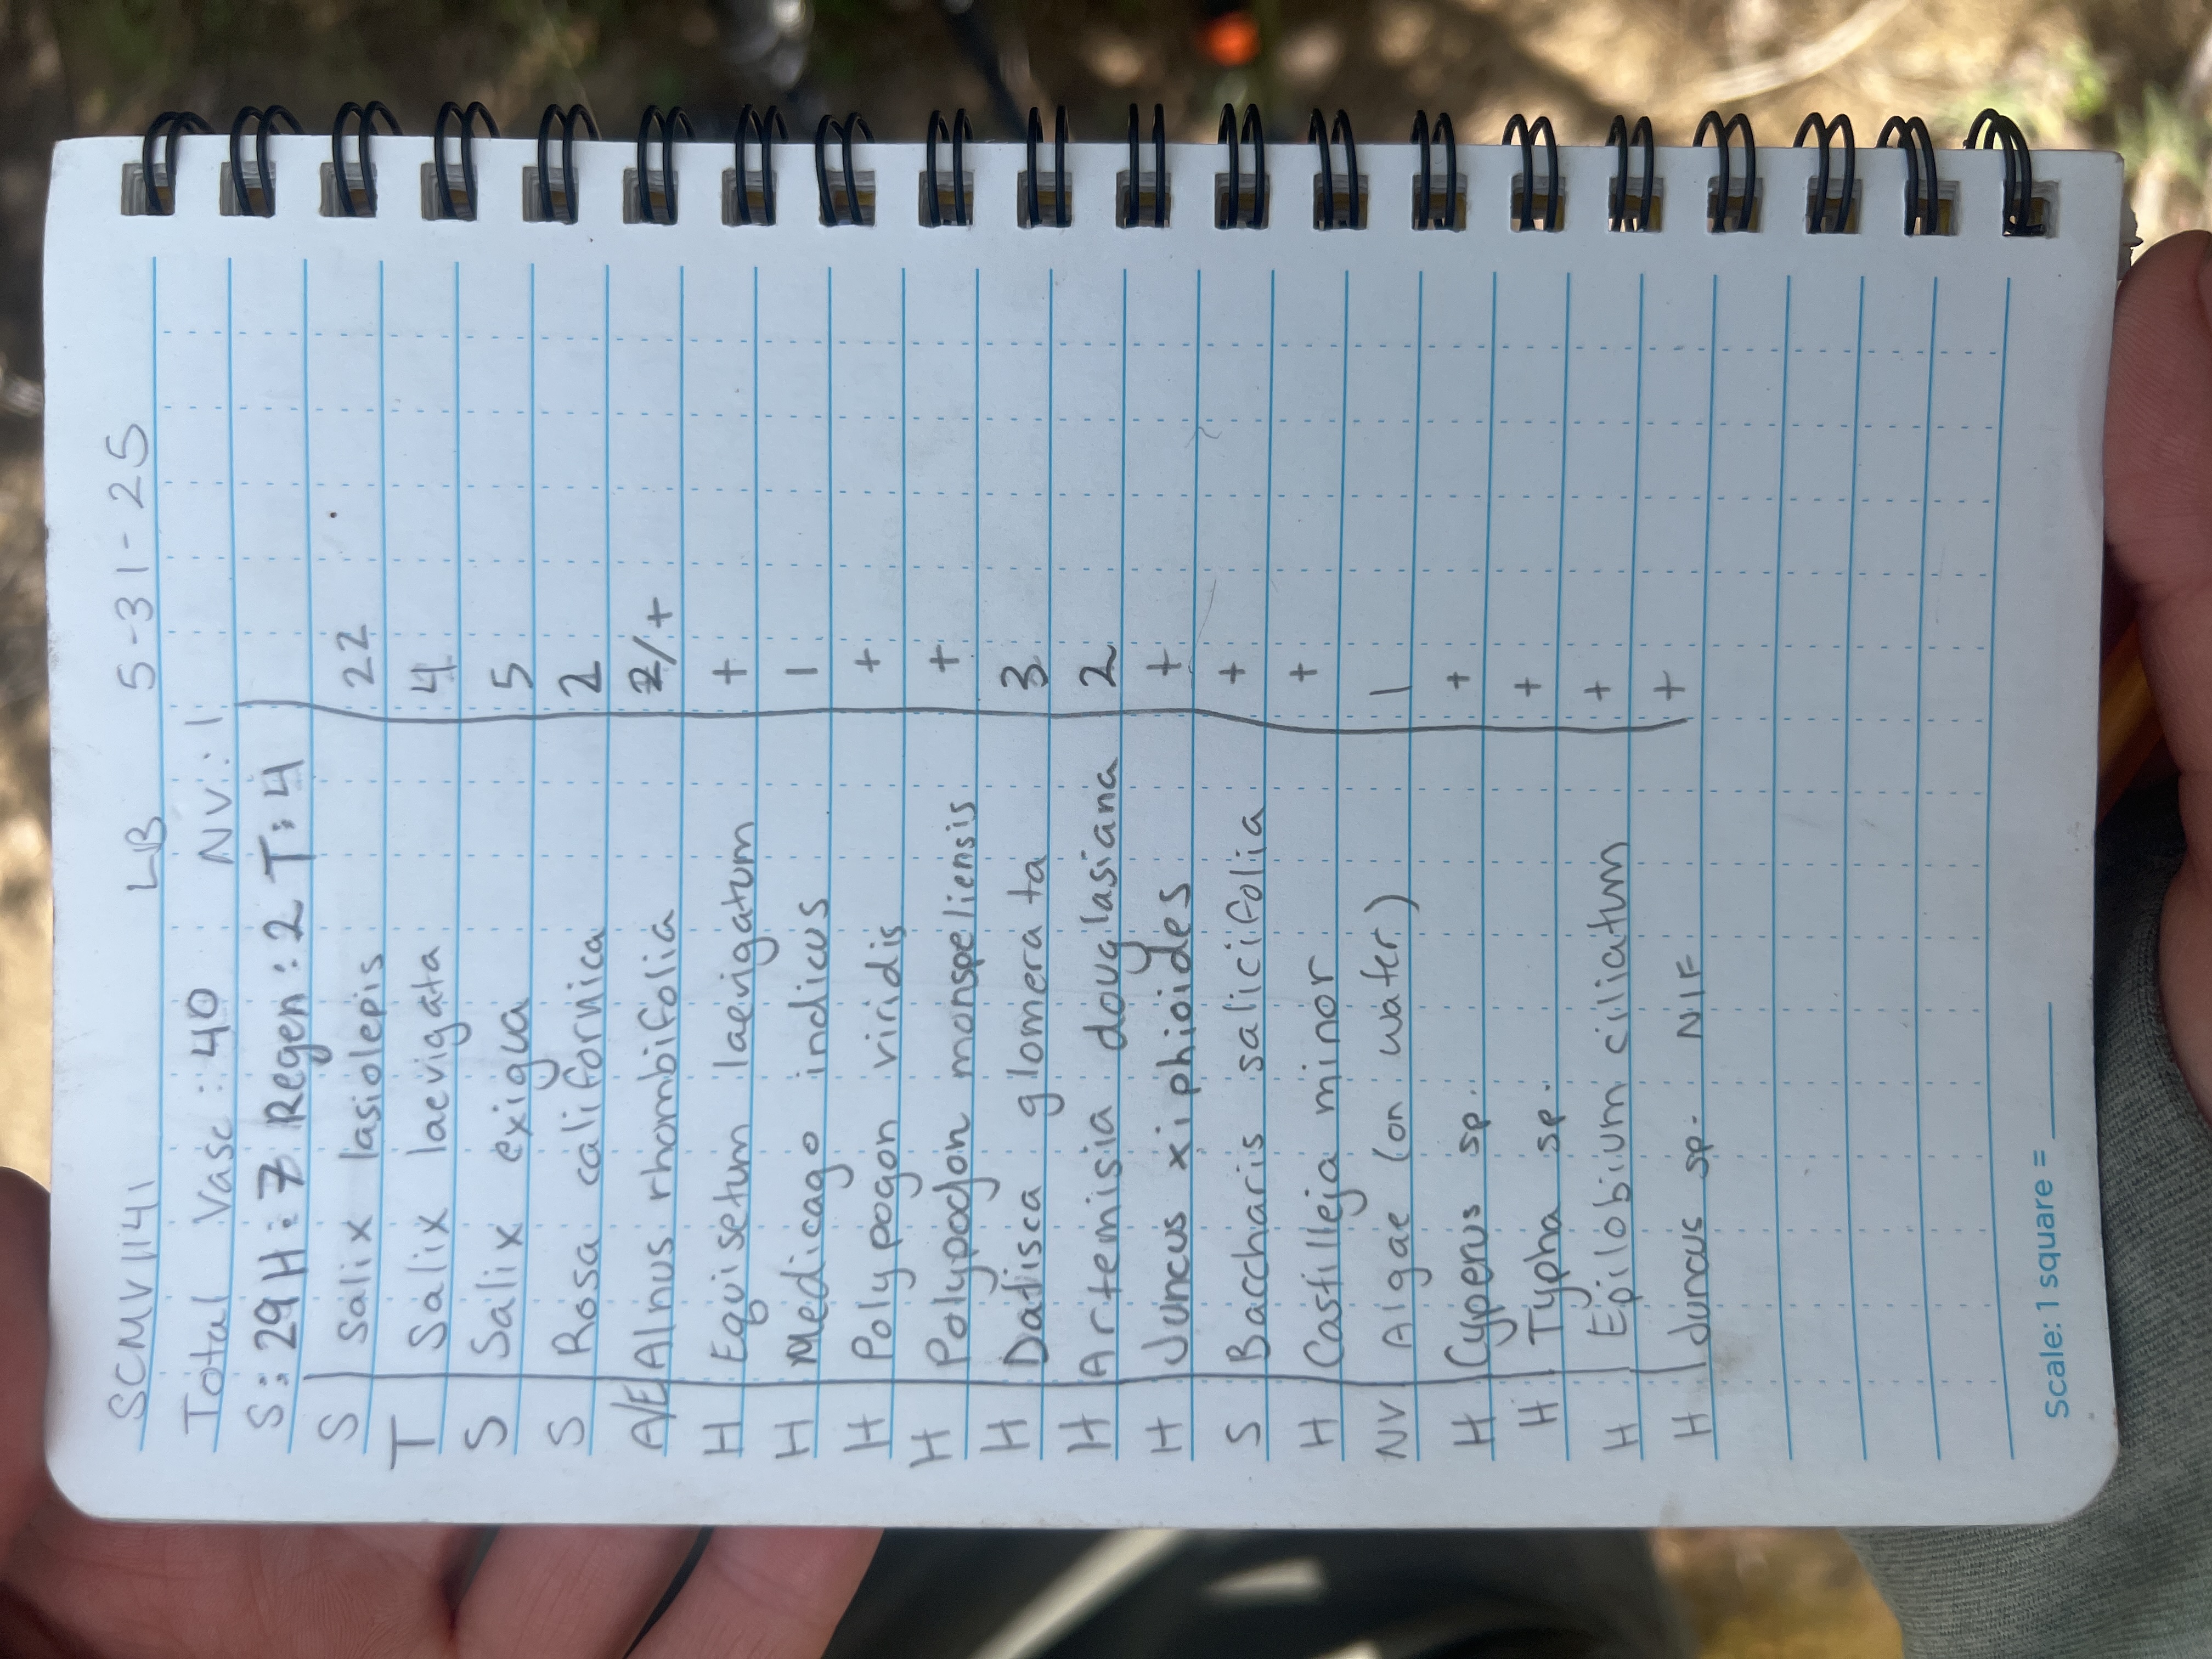 SCMV1141 LB 5-31-25
Total Vasc: 40 NV: 1
S: 29 H: 7 Regen: 2 T: 4
S Salix lasiolepis 22
T Salix laevigata 4
S Salix exigua 5
S Rosa californica 2
A/E Alnus rhombifolia 2/+
H Equisetum laevigatum +
H Medicago indicus 1
H Polypogon viridis +
H Polypogon monspeliensis +
H Datisca glomerata 3
H Artemisia douglasiana 2
H Juncus xiphioides +
S Baccharis salicifolia +
H Castilleja minor +
NV Algae (on water) 1
H Cyperus sp. +
H Typha sp. +
H Epilobium ciliatum +
H Juncus sp. NIF +
Scale: 1 square =